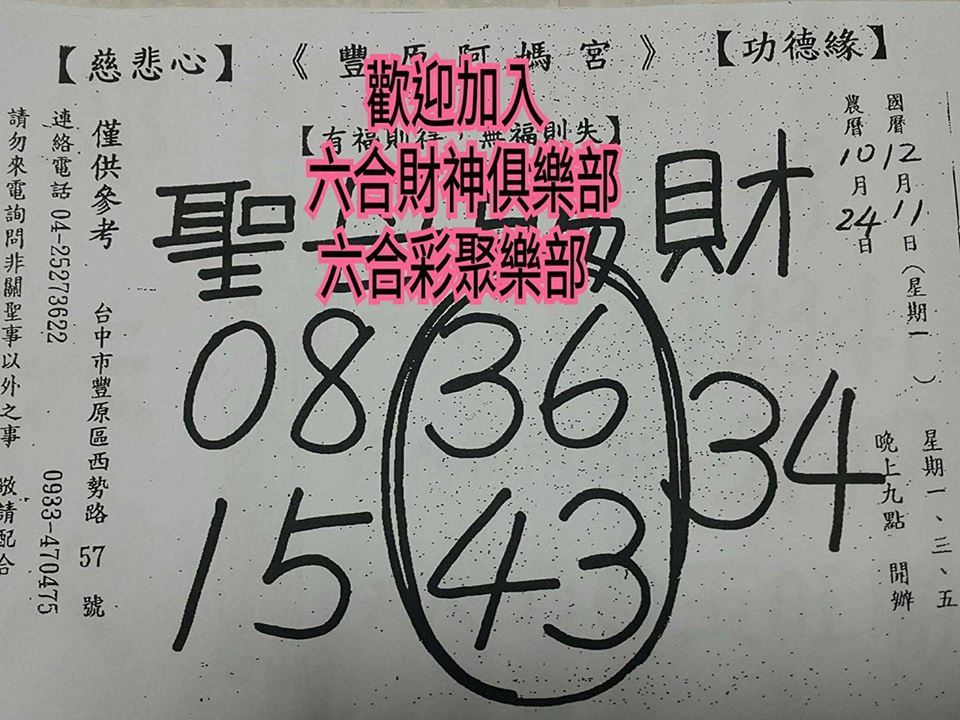 【慈悲心】 《豐原阿媽宮》 【功德緣】
歡迎加入
【有福則得 無福則失】
六合財神俱樂部
六合彩聚樂部
國曆12月11日(星期一)
農曆10月24日
聖 財
08 36 34
15 43
星期一、三、五
晚上九點 開辦
僅供參考 台中市豐原區西勢路57號
連絡電話 04-25273622 0933-470475
請勿來電詢問非關聖事以外之事 敬請配合